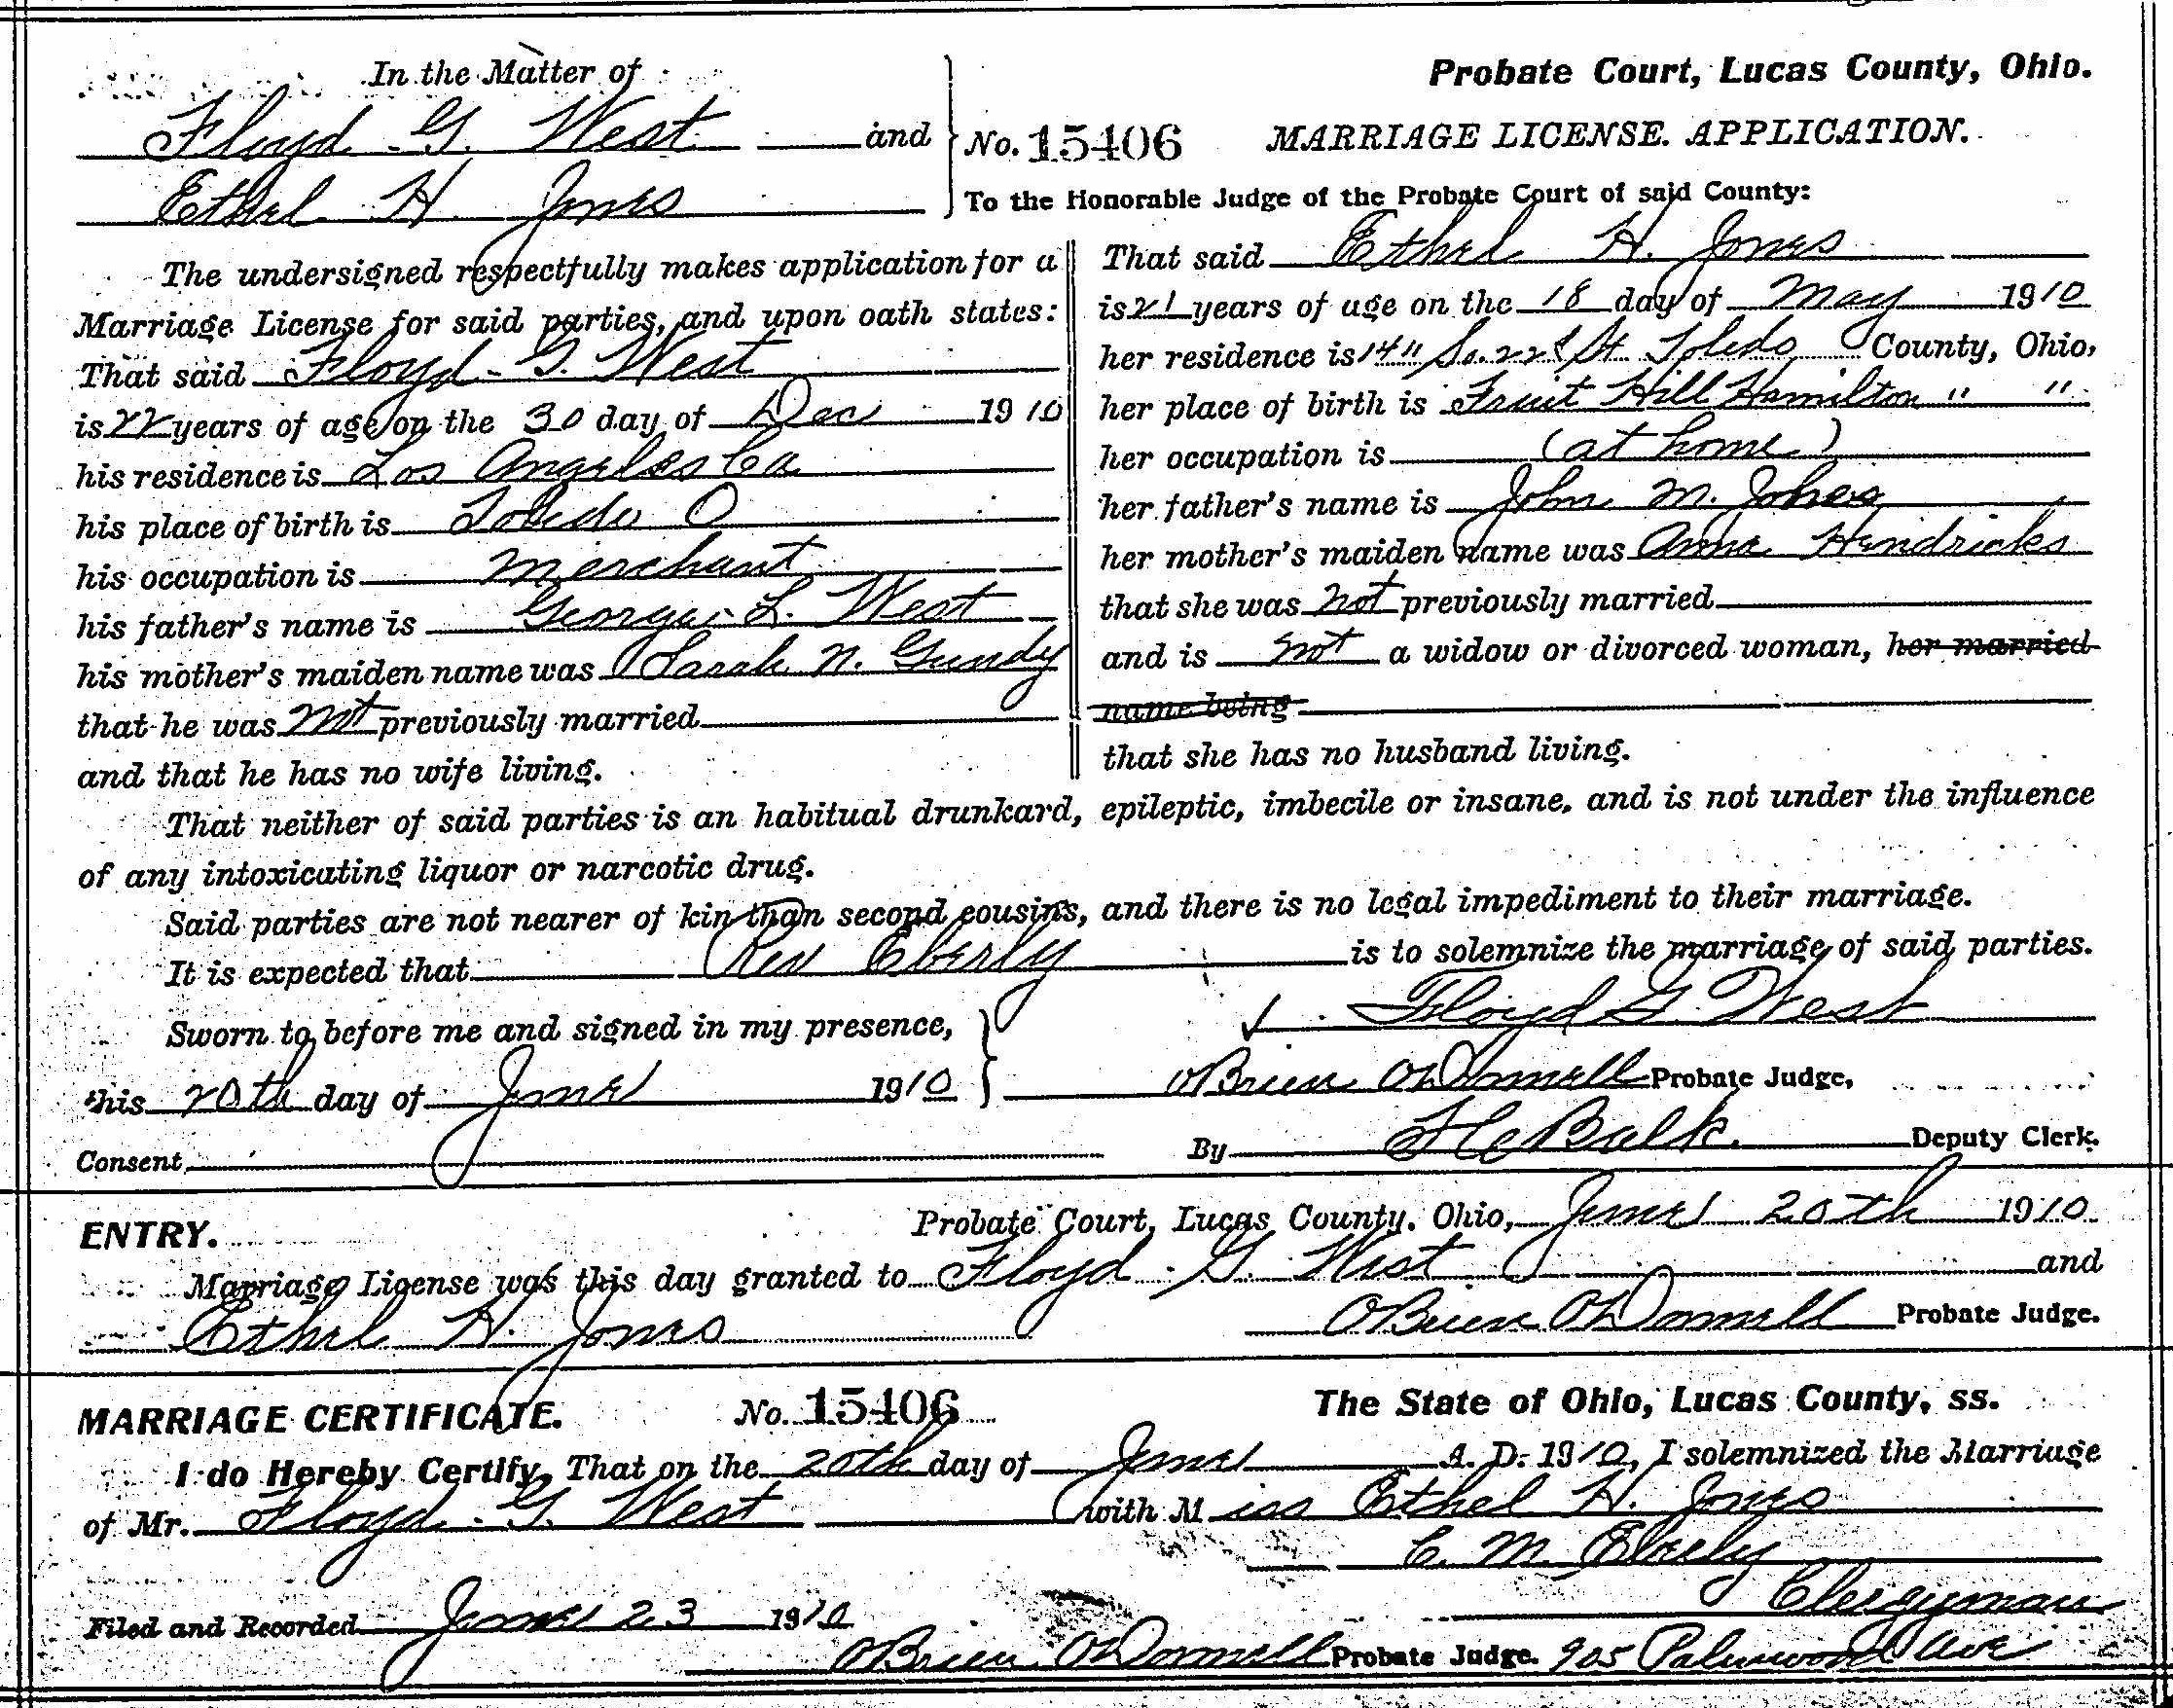 In the Matter of
Floyd G. West and
Ethel H. Jones
Probate Court, Lucas County, Ohio.
No. 15406 MARRIAGE LICENSE. APPLICATION.
To the Honorable Judge of the Probate Court of said County:
The undersigned respectfully makes application for a
Marriage License for said parties, and upon oath states:
That said Floyd G. West
is 22 years of age on the 30 day of Dec 1910
his residence is Los Angeles Ca
his place of birth is Toledo O
his occupation is merchant
his father's name is George L. West
his mother's maiden name was Sarah N. Gundy
that he was not previously married
and that he has no wife living.
That said Ethel H. Jones
is 21 years of age on the 18 day of May 1910
her residence is 14 So. 22d St. Toledo County, Ohio,
her place of birth is Fruit Hill Hamilton " "
her occupation is (at home)
her father's name is John M. Jones
her mother's maiden name was Anna Hendricks
that she was not previously married
and is not a widow or divorced woman, her married
name being
that she has no husband living.
That neither of said parties is an habitual drunkard, epileptic, imbecile or insane, and is not under the influence
of any intoxicating liquor or narcotic drug.
Said parties are not nearer of kin than second cousins, and there is no legal impediment to their marriage.
It is expected that Rev Eberly is to solemnize the marriage of said parties.
Sworn to before me and signed in my presence, Floyd G. West
this 20th day of June 1910 O'Brien O'Donnell Probate Judge,
Consent By Deputy Clerk.
ENTRY. Probate Court, Lucas County. Ohio, June 20th 1910
Marriage License was this day granted to Floyd G. West and
Ethel H. Jones O'Brien O'Donnell Probate Judge.
MARRIAGE CERTIFICATE. No. 15406 The State of Ohio, Lucas County, ss.
I do Hereby Certify, That on the 20th day of June A. D. 1910, I solemnized the Marriage
of Mr. Floyd G. West with Miss Ethel H. Jones
C. M. Eberly
Clergyman
Filed and Recorded June 23 1910
O'Brien O'Donnell Probate Judge. 905 Palmwood Ave